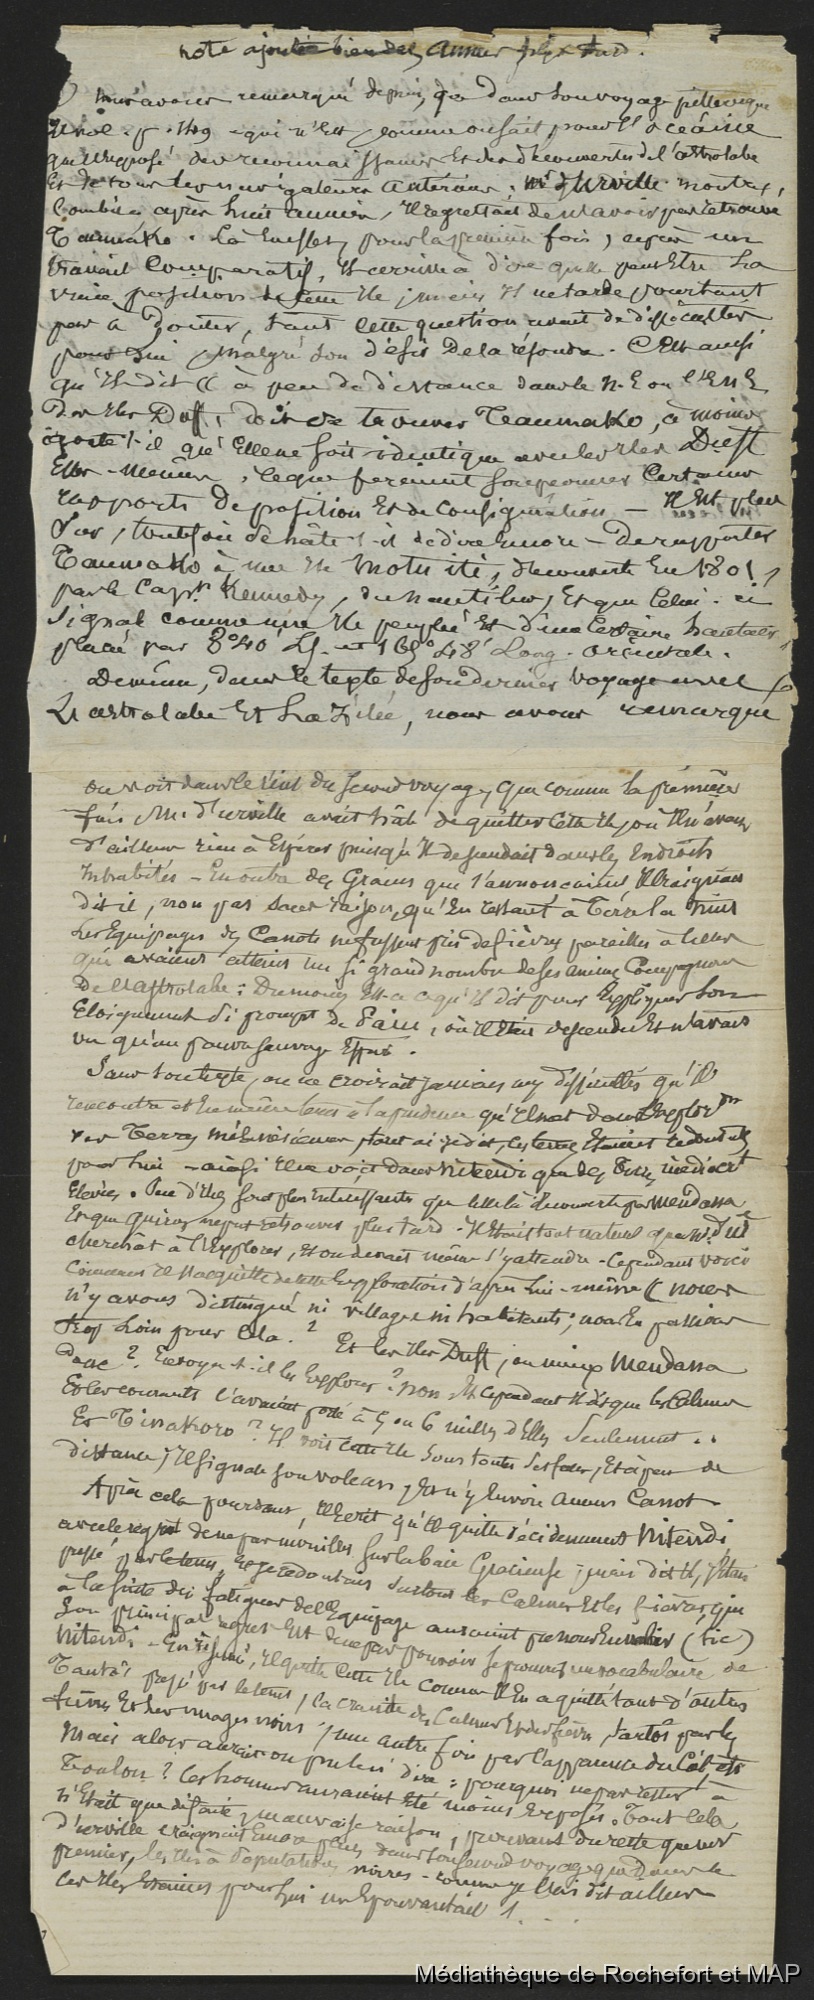 note ajoutée bien des années plus tard.
Nous avons remarqué depuis, que dans son voyage pittoresque
qui n'est comme on sait pour l'océanie
qu'un exposé des reconnaissances et des découvertes de l'astrolabe
et de tous les navigateurs antérieurs, Mr d'Urville montre,
combien après huit années, il regrettait de n'avoir pas retrouvé
Taumako. Là en effet, pour la première fois, après un
travail comparatif, il arrive à dire quelle peut être la
vraie position de cette île; mais il ne tarde pourtant
pas à douter, tant cette question avait de difficultés
pour lui malgré son désir de la résoudre. C'est ainsi
qu'il dit (( à peu de distance dans le N.E ou l'E.N.E
des îles Duff, doit se trouver Taumako, à moins
ajoute-t-il qu'elle ne soit identique avec les îles Duff
elles-mêmes, ce que feraient soupçonner certains
rapports de position et de configuration — Il est plus
sûr, toutefois se hâte-t-il de dire encore — de rapporter
Taumako à une île Motu iti, découverte en 1801,
par le Capne Kennedy, du nautilus, et que celui-ci
signale comme une île peuplée et d'une certaine hauteur
placée par 8°40' Lg. et 165°48' Long. orientale.
De même, dans le texte de son dernier voyage avec
L'astrolabe et La Zélée, nous avons remarqué
on voit dans le récit du second voyage, que comme la première
fois Mr. d'urville avait hâte de quitter cette île, où il n'avait
d'ailleurs rien à espérer puisqu'il descendait dans les endroits
inhabités — En outre des grains que s'annonçaient il craignait
dit-il, non pas sans raison, qu'en restant à terre la nuit
les équipages des canots ne fussent pris de fièvres pareilles à celles
qui avaient atteint un si grand nombre de ses anciens compagnons
de l'astrolabe; Du moins est-ce ce qu'il dit pour expliquer son
éloignement si prompt de , où il était descendu et n'avait
vu qu'un pauvre sauvage .
Sans son texte, on ne croirait jamais aux difficultés qu'il
rencontra et en même temps à la prudence qu'il met dans l'explor.on
des terres mélanésiennes, tant ai-je dit, ces terres étaient redoutables
pour lui — ainsi il ne voit dans Nitendi que des terres médiocret
élevées. Peu d'îles sont plus intéressantes que celle-là découverte par Mendana
et que Quiros ne put retrouver plus tard. Il était tout naturel que M. d'Ulle
cherchât à l'explorer, et on devait même s'y attendre — Cependant voici
comment il s'acquitte de cette exploration d'après lui-même (( nous
n'y avons distingué ni village ni habitants; nous en passions
trop loin pour cela. ? Et les îles Duff, ou mieux Mendana
Donc ? Envoya-t-il les explorer ? non, et cependant il dit que les Calmes
et les courants l'avaient porté à 5 ou 6 milles d'elles seulement..
Et Tinakoro ? Il voit cette île sous toutes ses faces, et à peu de
distance; Il signale son volcan, et n'y envoie aucun canot —
Après cela pourtant, il écrit qu'il quitte décidemment Nitendi
avec le regret de ne pas mouiller sur la baie Gracieuse; mais dit-il, j'étais
pressé par le temps, et je redoutais surtout les calmes et les fièvres qui
à la suite des fatigues de l'équipage auraient pu nous envahir (sic)
Son principal regret est de ne pas pouvoir se procurer un vocabulaire de
Nitendi — En résumé, il quitte cette île comme il en a quitté tant d'autres
Tantôt pressé par le temps, la crainte des calmes et des fièvres, tantôt par les
fièvres et les nuages noirs, une autre fois par l'apparence du Ciel, etc
Mais alors aurait-on pu lui dire: pourquoi ne pas rester à
Toulon ? les hommes auraient été moins exposés. Tout cela
n'était que défaite, mauvaise raison, prouvant du reste que mr
d'urville craignait encore plus dans son second voyage que dans le
premier, les îles à populations noires — comme je l'ai dit ailleurs
ces îles étaient pour lui un épouvantail !...
Médiathèque de Rochefort et MAP